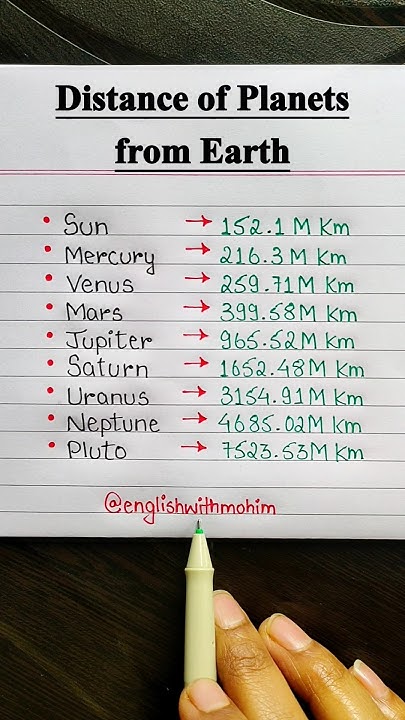 Distance of Planets
from Earth
• Sun → 152.1 M Km
• Mercury → 216.3 M Km
• Venus → 259.71 M Km
• Mars → 399.58 M Km
• Jupiter → 965.52 M Km
• Saturn → 1652.48 M Km
• Uranus → 3154.91 M Km
• Neptune → 4685.02 M Km
• Pluto → 7523.53 M Km
@englishwithmohim